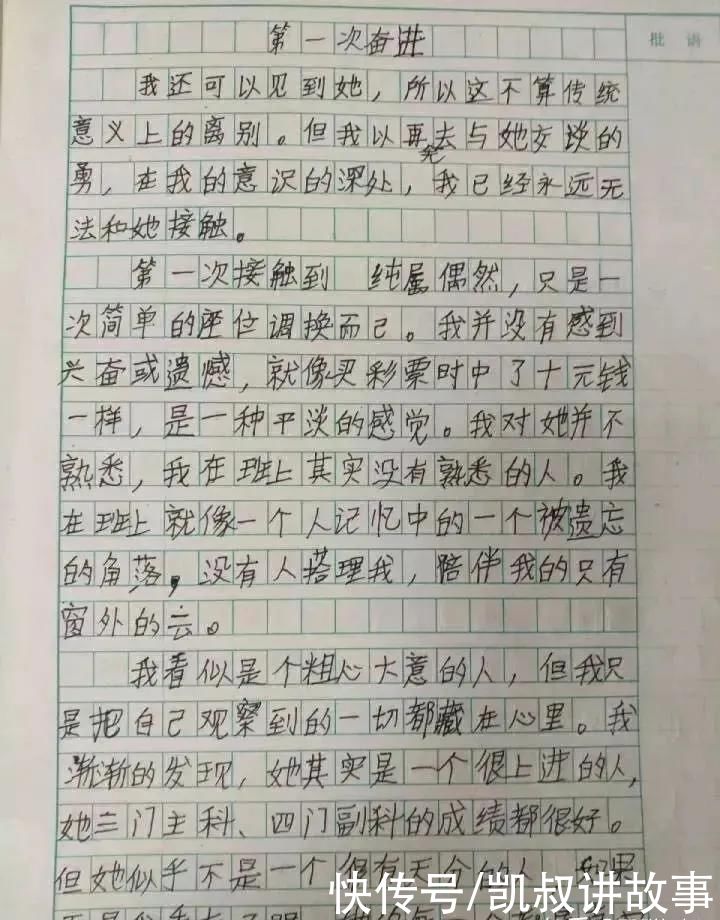 批语
第一次奋进
我还可以见到她，所以这不算传统
意义上的离别。但我以再去与她交谈的
勇，在我的意识的深处，我已经永远无
法和她接触。
第一次接触到 纯属偶然，只是一
次简单的座位调换而已。我并没有感到
兴奋或遗憾，就像买彩票时中了十元钱
一样，是一种平淡的感觉。我对她并不
熟悉，我在班上其实没有熟悉的人。我
在班上就像一个人记忆中的一个被遗忘
的角落，没有人搭理我，陪伴我的只有
窗外的云。
我看似是个粗心大意的人，但我只
是把自己观察到的一切都藏在心里。我
渐渐的发现，她其实是一个很上进的人，
她三门主科、四门副科的成绩都很好。
但她似乎不是一个很有天分的人
快传号/凯叔讲故事